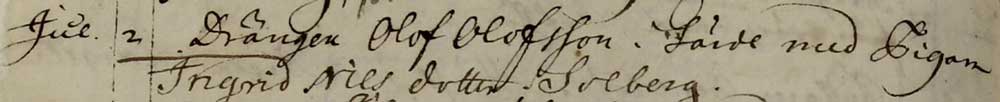 Jul. 2 Drängen Olof Olofsson i Särde med Pigan
Ingrid Nils dotter i Solberg.